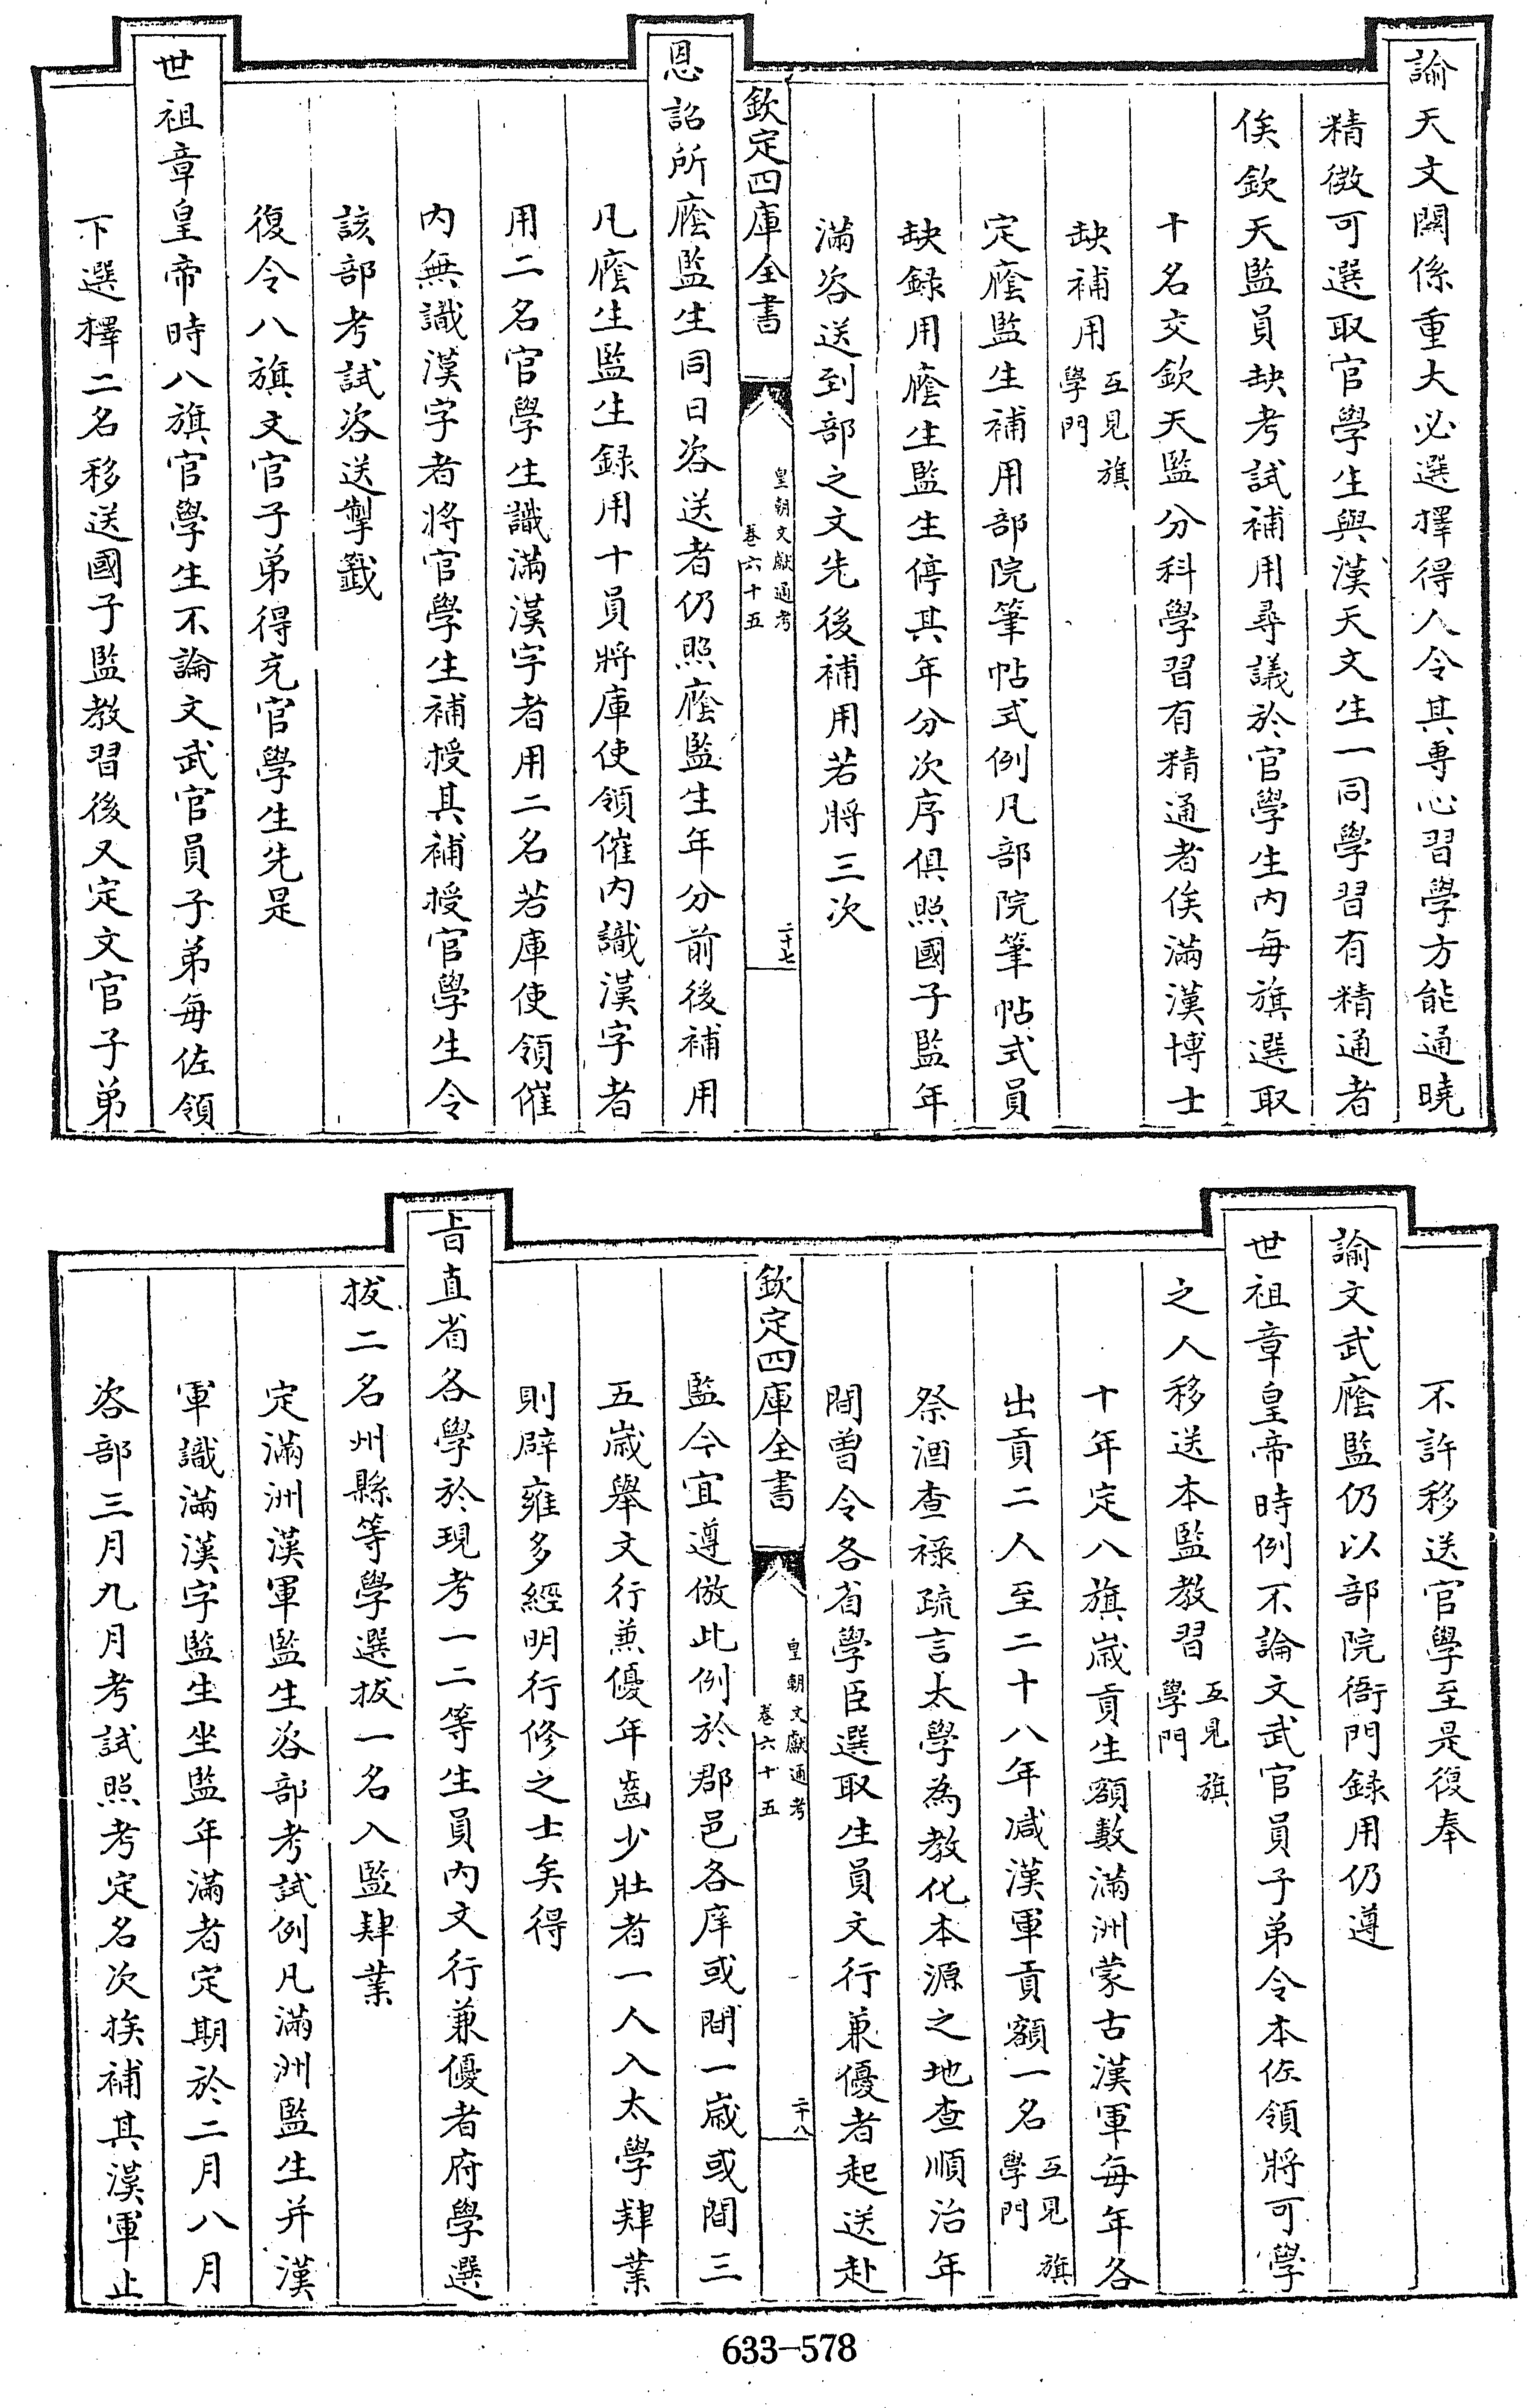 諭天文關係重大必選擇得人令其專心習學方能通曉
精微可選取官學生與漢天文生一同學習有精通者
俟欽天監員缺考試補用尋議於官學生內每旗選取
十名交欽天監分科學習有精通者俟滿漢博士
缺補用互見旗學門
定廕監生補用部院筆帖式例凡部院筆帖式員
缺録用廕生監生停其年分次序俱照國子監年
滿咨送到部之文先後補用若將三次
欽定四庫全書
皇朝文獻通考
卷六十五
二十七
恩詔所廕監生同日咨送者仍照廕監生年分前後補用
凡廕生監生録用十員將庫使領催內識漢字者
用二名官學生識滿漢字者用二名若庫使領催
內無識漢字者將官學生補授其補授官學生令
該部考試咨送掣籤
復令八旗文官子弟得充官學生先是
世祖章皇帝時八旗官學生不論文武官員子弟每佐領
下選擇二名移送國子監教習後又定文官子弟
不許移送官學至是復奉
諭文武廕監仍以部院衙門録用仍遵
世祖章皇帝時例不論文武官員子弟令本佐領將可學
之人移送本監教習互見旗學門
十年定八旗歲貢生額數滿洲蒙古漢軍每年各
出貢二人至二十八年減漢軍貢額一名互見旗學門
祭酒查祿疏言太學為教化本源之地查順治年
間曽令各省學臣選取生員文行兼優者起送赴
欽定四庫全書
皇朝文獻通考
卷六十五
二十八
監今宜遵倣此例於郡邑各庠或間一歲或間三
五歲舉文行兼優年齒少壯者一人入太學肄業
則辟雍多經明行修之士矣得
旨直省各學於現考一二等生員內文行兼優者府學選
拔二名州縣等學選拔一名入監肄業
定滿洲漢軍監生咨部考試例凡滿洲監生并漢
軍識滿漢字監生坐監年滿者定期於二月八月
咨部三月九月考試照考定名次挨補其漢軍止
633-578